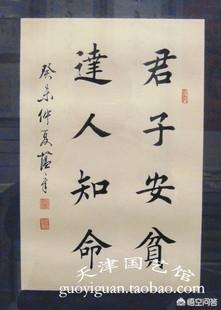 君子安貧
達人知命
癸未仲夏
天津国艺馆
guoyiguan.taobao.com
悟空问答